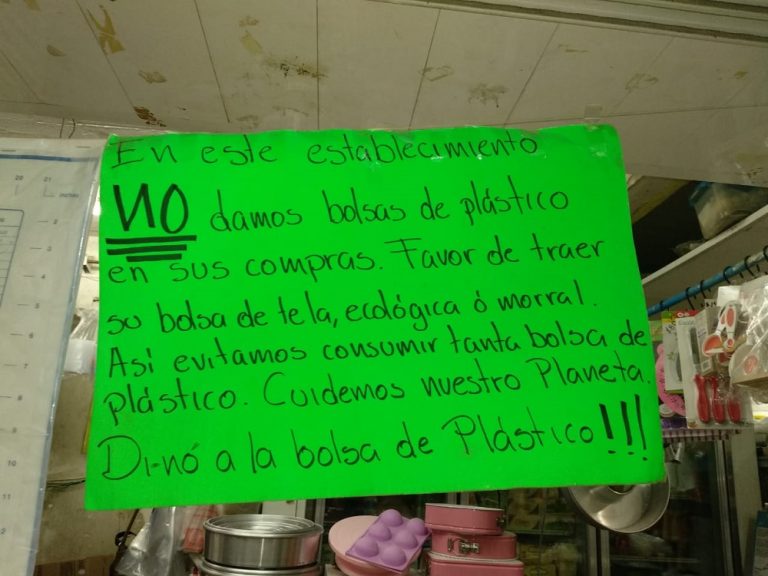 En este establecimiento
NO damos bolsas de plástico
en sus compras. Favor de traer
su bolsa de tela, ecológica ó morral.
Así evitamos consumir tanta bolsa de
plástico. Cuidemos nuestro Planeta.
Di-nó a la bolsa de Plástico!!!